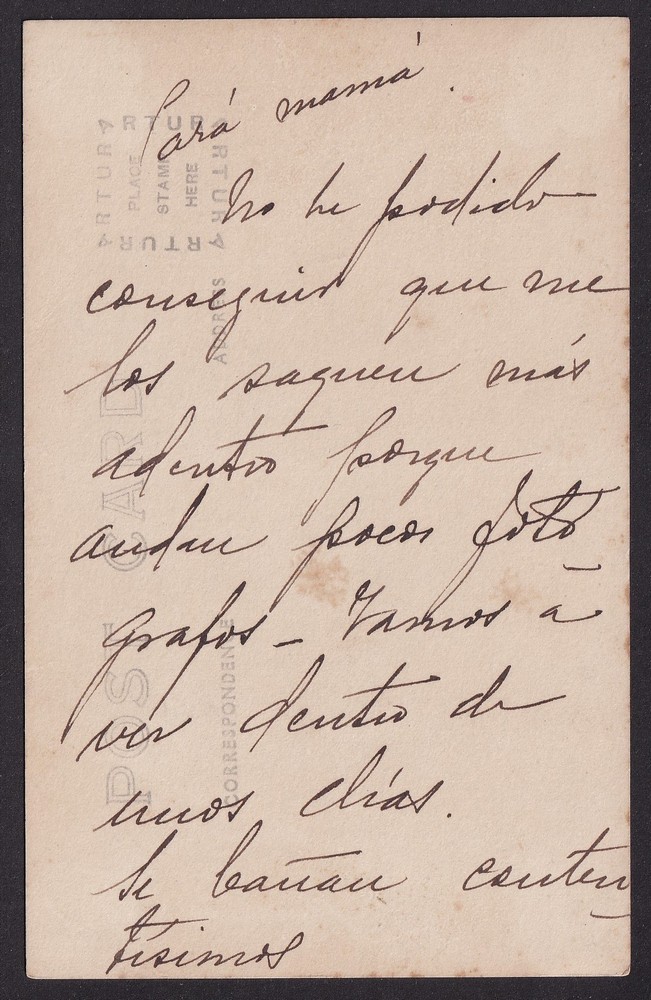 Pará mamá.
No he podido
conseguir que me
los saquen más
adentro porque
andan pocos fotó
grafos - Vamos á
ver dentro de
unos días.
Se bañan conten
tísimos
ARTURA
ARTURA
ARTURA
ARTURA
PLACE
STAMP
HERE
ADDRESS
POST CARD
CORRESPONDENCE